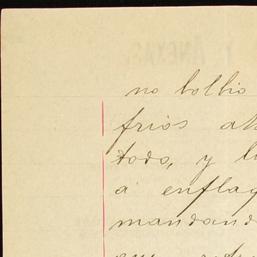 no bolbio
frios
todo, y
á enflaq
mandand
que